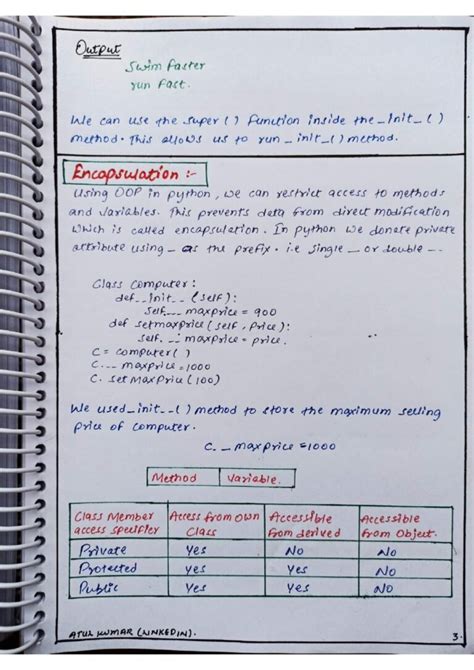 Output
Swim faster
run fast.
We can use the super() function inside the _init_()
method. This allows us to run _init_() method.
Encapsulation :-
Using OOP in python, we can restrict access to methods
and variables. This prevents data from direct modification
which is called encapsulation. In python we donate private
attribute using _ as the prefix. i.e single _ or double --.
Class Computer:
def__init__(self):
self.__maxprice = 900
def setmaxprice(self, Price):
self.__maxprice = price.
C = computer()
C.__maxprice = 1000
C. setMaxPrice(100)
We used_init__() method to store the maximum selling
price of computer.
C. __maxprice = 1000
Method Variable.
Class Member access specifier Access from own Class Accessible from derived Accessible from Object.
Private Yes No No
Protected Yes Yes No
Public Yes Yes Yes
ATUL KUMAR (LINKEDIN).
3.